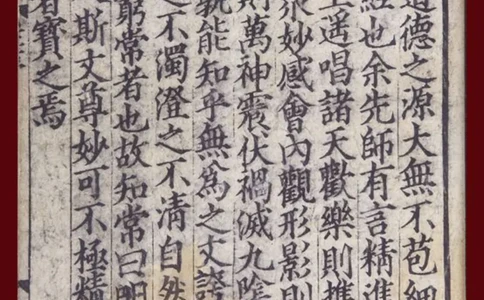 道德之源大無不苞細
經也余先師有言精進
上遥唱諸天歡樂則携
永妙感會内觀形影則
則萬神震伏禍滅九陰
孰能知乎無爲之文
之不濁澄之不清自然
窮常者也故知常曰明
斯文尊妙可不極精
者寶之焉